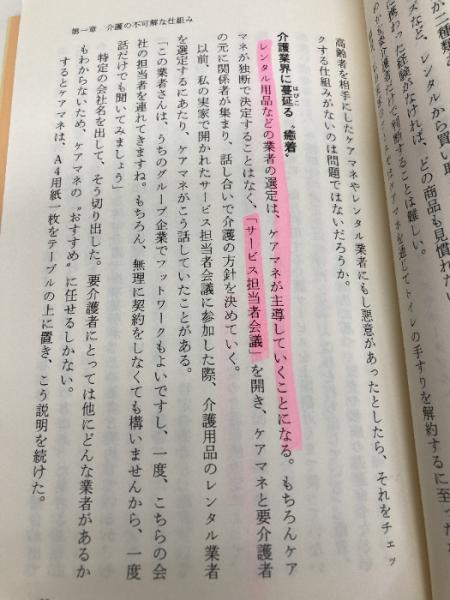 か二種類
ズなど、レンタルから買い取
携わった経験がなければ、どの商品も見慣れない
で判断することは難しい。
ケアマネを通してトイレの手すりを解約するに至った
高齢者を相手にしたケアマネやレンタル業者にもし悪意があったとしたら、それをチェッ
クする仕組みがないのは問題ではないだろうか。
介護業界に蔓延る〝癒着〟
はびこ
レンタル用品などの業者の選定は、ケアマネが主導していくことになる。もちろんケア
マネが独断で決定することはなく、「サービス担当者会議」を開き、ケアマネと要介護者
の元に関係者が集まり、話し合いで介護の方針を決めていく。
以前、私の実家で開かれたサービス担当者会議に参加した際、介護用品のレンタル業者
を選定するにあたり、ケアマネがこう話していたことがある。
「この業者さんは、うちのグループ企業でフットワークもよいですし、一度、こちらの会
社の担当者を連れてきますね。もちろん、無理に契約をしなくても構いませんから、一度
話だけでも聞いてみましょう」
特定の会社名を出して、そう切り出した。要介護者にとっては他にどんな業者があるか
もわからないため、ケアマネの〝おすすめ〟に任せるしかない。
するとケアマネは、A4用紙一枚をテーブルの上に置き、こう説明を続けた。
第一章 介護の不可解な仕組み